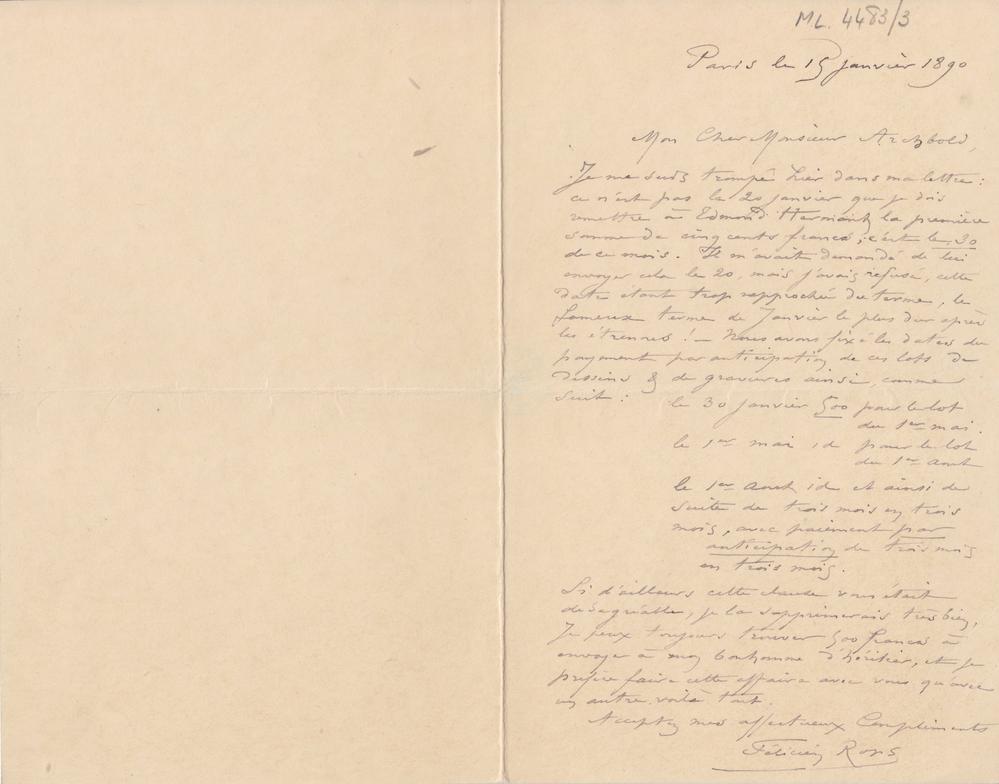 ML. 4483/3
Paris le 15 janvier 1890
Mon Cher Monsieur Archbold,
Je me suis trompé hier dans ma lettre :
ce n'est pas le 20 janvier que je dois
remettre à Edmond la première
somme de cinq cents francs ; c'est le 30
de ce mois. Il m'avait demandé de lui
envoyer cela le 20, mais j'avais refusé, cette
date étant trop rapprochée du terme, le
fameux terme de Janvier le plus dur après
les étrennes ! – Nous avons fixé les dates du
payement par anticipation de ces lots de
dessins & de gravures ainsi, comme
suit : le 30 janvier 500 pour le lot
du 1er mai.
le 1er mai id pour le lot
du 1er aout
le 1er aout id et ainsi de
suite de trois mois en trois
mois, avec paiement par
anticipation de trois mois
en trois mois.
Si d'ailleurs cette clause vous était
désagréable, je la supprimerais très bien,
Je peux toujours trouver 500 francs à
envoyer à mon bonhomme d'héritier, et je
préfère faire cette affaire avec vous qu'avec
un autre voilà tout.
Acceptez mes affectueux Compliments
Félicien Rops